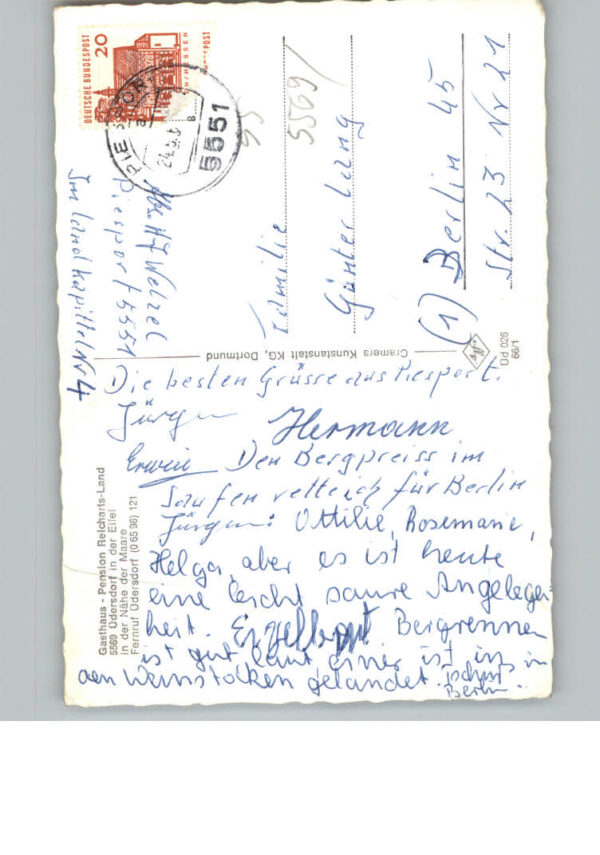 DEUTSCHE BUNDESPOST
20
PIESPORT
5551
Abs. HJ Welzel
Piesport 5551
Im Landkapittel Nr 4
5569
Familie
Günter Lang
(1) Berlin 45
Str. 23 Nr 21
Cramers Kunstanstalt KG, Dortmund
Dd 026
66/1
Die besten Grüsse aus Piesport.
Jürgen
Hermann
Erwin Den Bergpreiss im
Saufen rette ich für Berlin
Jürgen: Ottilie, Rosemarie,
Helga, aber es ist heute
eine leicht saure Angelegen-
heit. Bergrennen
ist gut, einer ist in
den Weinstöcken gelandet.
Berlin.
Gasthaus - Pension Reicharts-Land
5569 Üdersdorf in der Eifel
in der Nähe der Maare
Fernruf Üdersdorf (0 65 96) 121